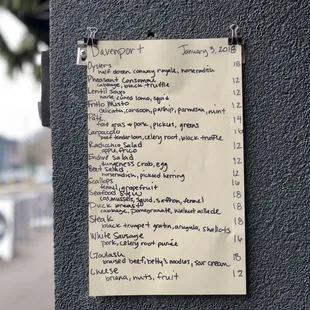 Davenport January 3, 2018
Oysters 18
half dozen conway royale, horseradish
Pheasant Consommé 12
cabbage, black truffle
Lentil Soup 12
house cured lomo, squid
Fritto Misto 12
delicata, cardoon, parsnip, parmesan, mint
Pâté 14
foie gras & pork, pickles, greens
Carpaccio 16
beef tenderloin, celery root, black truffle
Radicchio Salad 12
apple, frico
Endive Salad 12
dungeness crab, egg
Beet Salad 12
horseradish, pickled herring
Scallops 16
fennel, grapefruit
Seafood Stew 18
cod, mussels, squid, saffron, fennel
Duck Breast 18
cabbage, pomegranate, walnut aillade
Steak 18
black trumpet gratin, arugula, shallots
White Sausage 16
pork, celery root purée
Goulash 18
braised beef, betty's noodles, sour cream
Cheese 12
briana, nuts, fruit